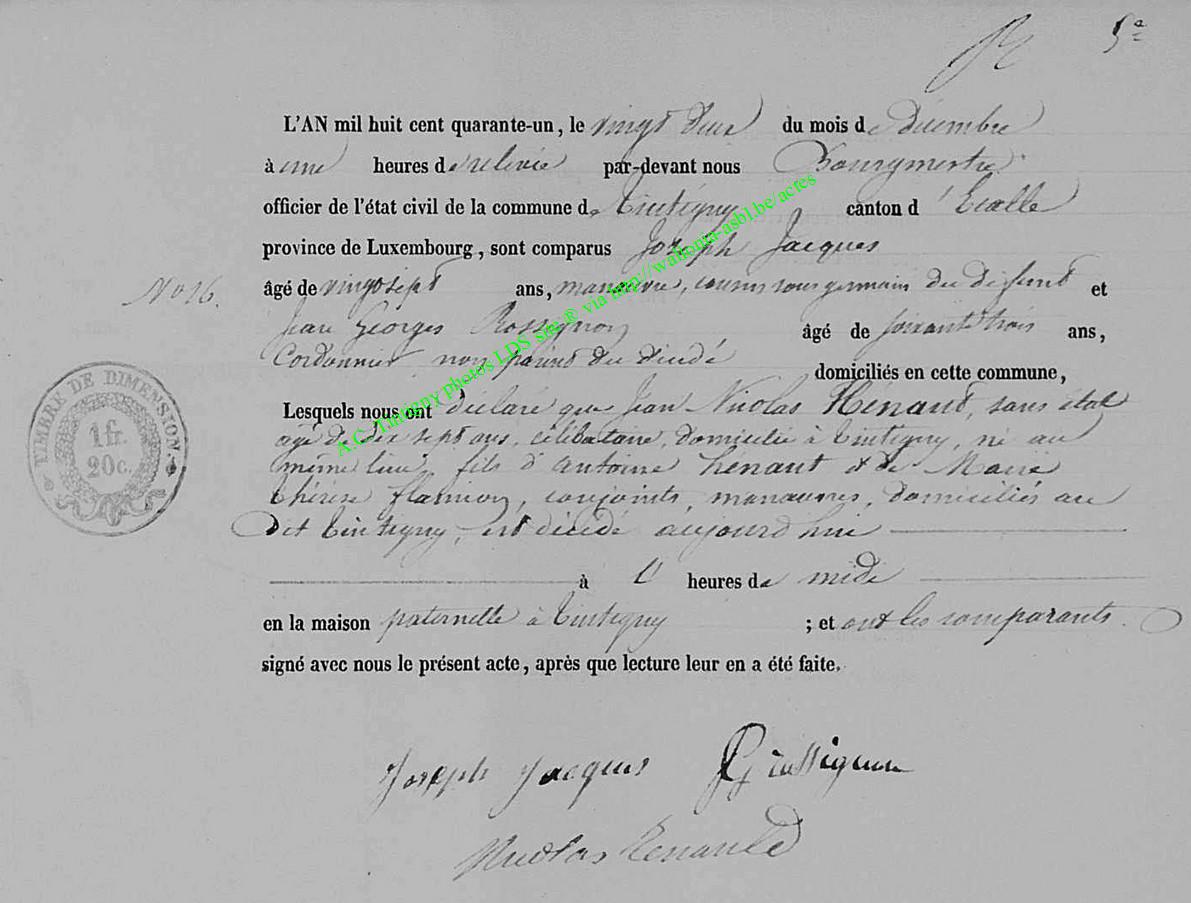 5e
L'AN mil huit cent quarante-un, le vingt deux du mois de décembre
à une heures de relevée par-devant nous Bourgmestre
officier de l'état civil de la commune de Tintigny canton d'Etalle
province de Luxembourg, sont comparus Joseph Jacques
No 16.
âgé de vingt sept ans, manœuvre, cousin sous germain du défunt et
Jean Georges Rossignon âgé de soixante trois ans,
Cordonnier, non parent du décédé domiciliés en cette commune,
Lesquels nous ont déclaré que Jean Nicolas Henaut, sans état
âgé de dix sept ans, célibataire, domicilié à Tintigny, né au
même lieu, fils d'antoine henaut et de Marie
thérèse flamion, conjoints, manœuvres, domiciliés au
dit tintigny, est décédé aujourd'hui
à heures de midi
en la maison paternelle à Tintigny ; et ont les comparants
signé avec nous le présent acte, après que lecture leur en a été faite.
TIMBRE DE DIMENSION
1 fr.
20 c.
Joseph Jacques JGrossignon
Nicolas
A.C. Tintigny photos LDS site ® via http://wallonia-asbl.be/actes